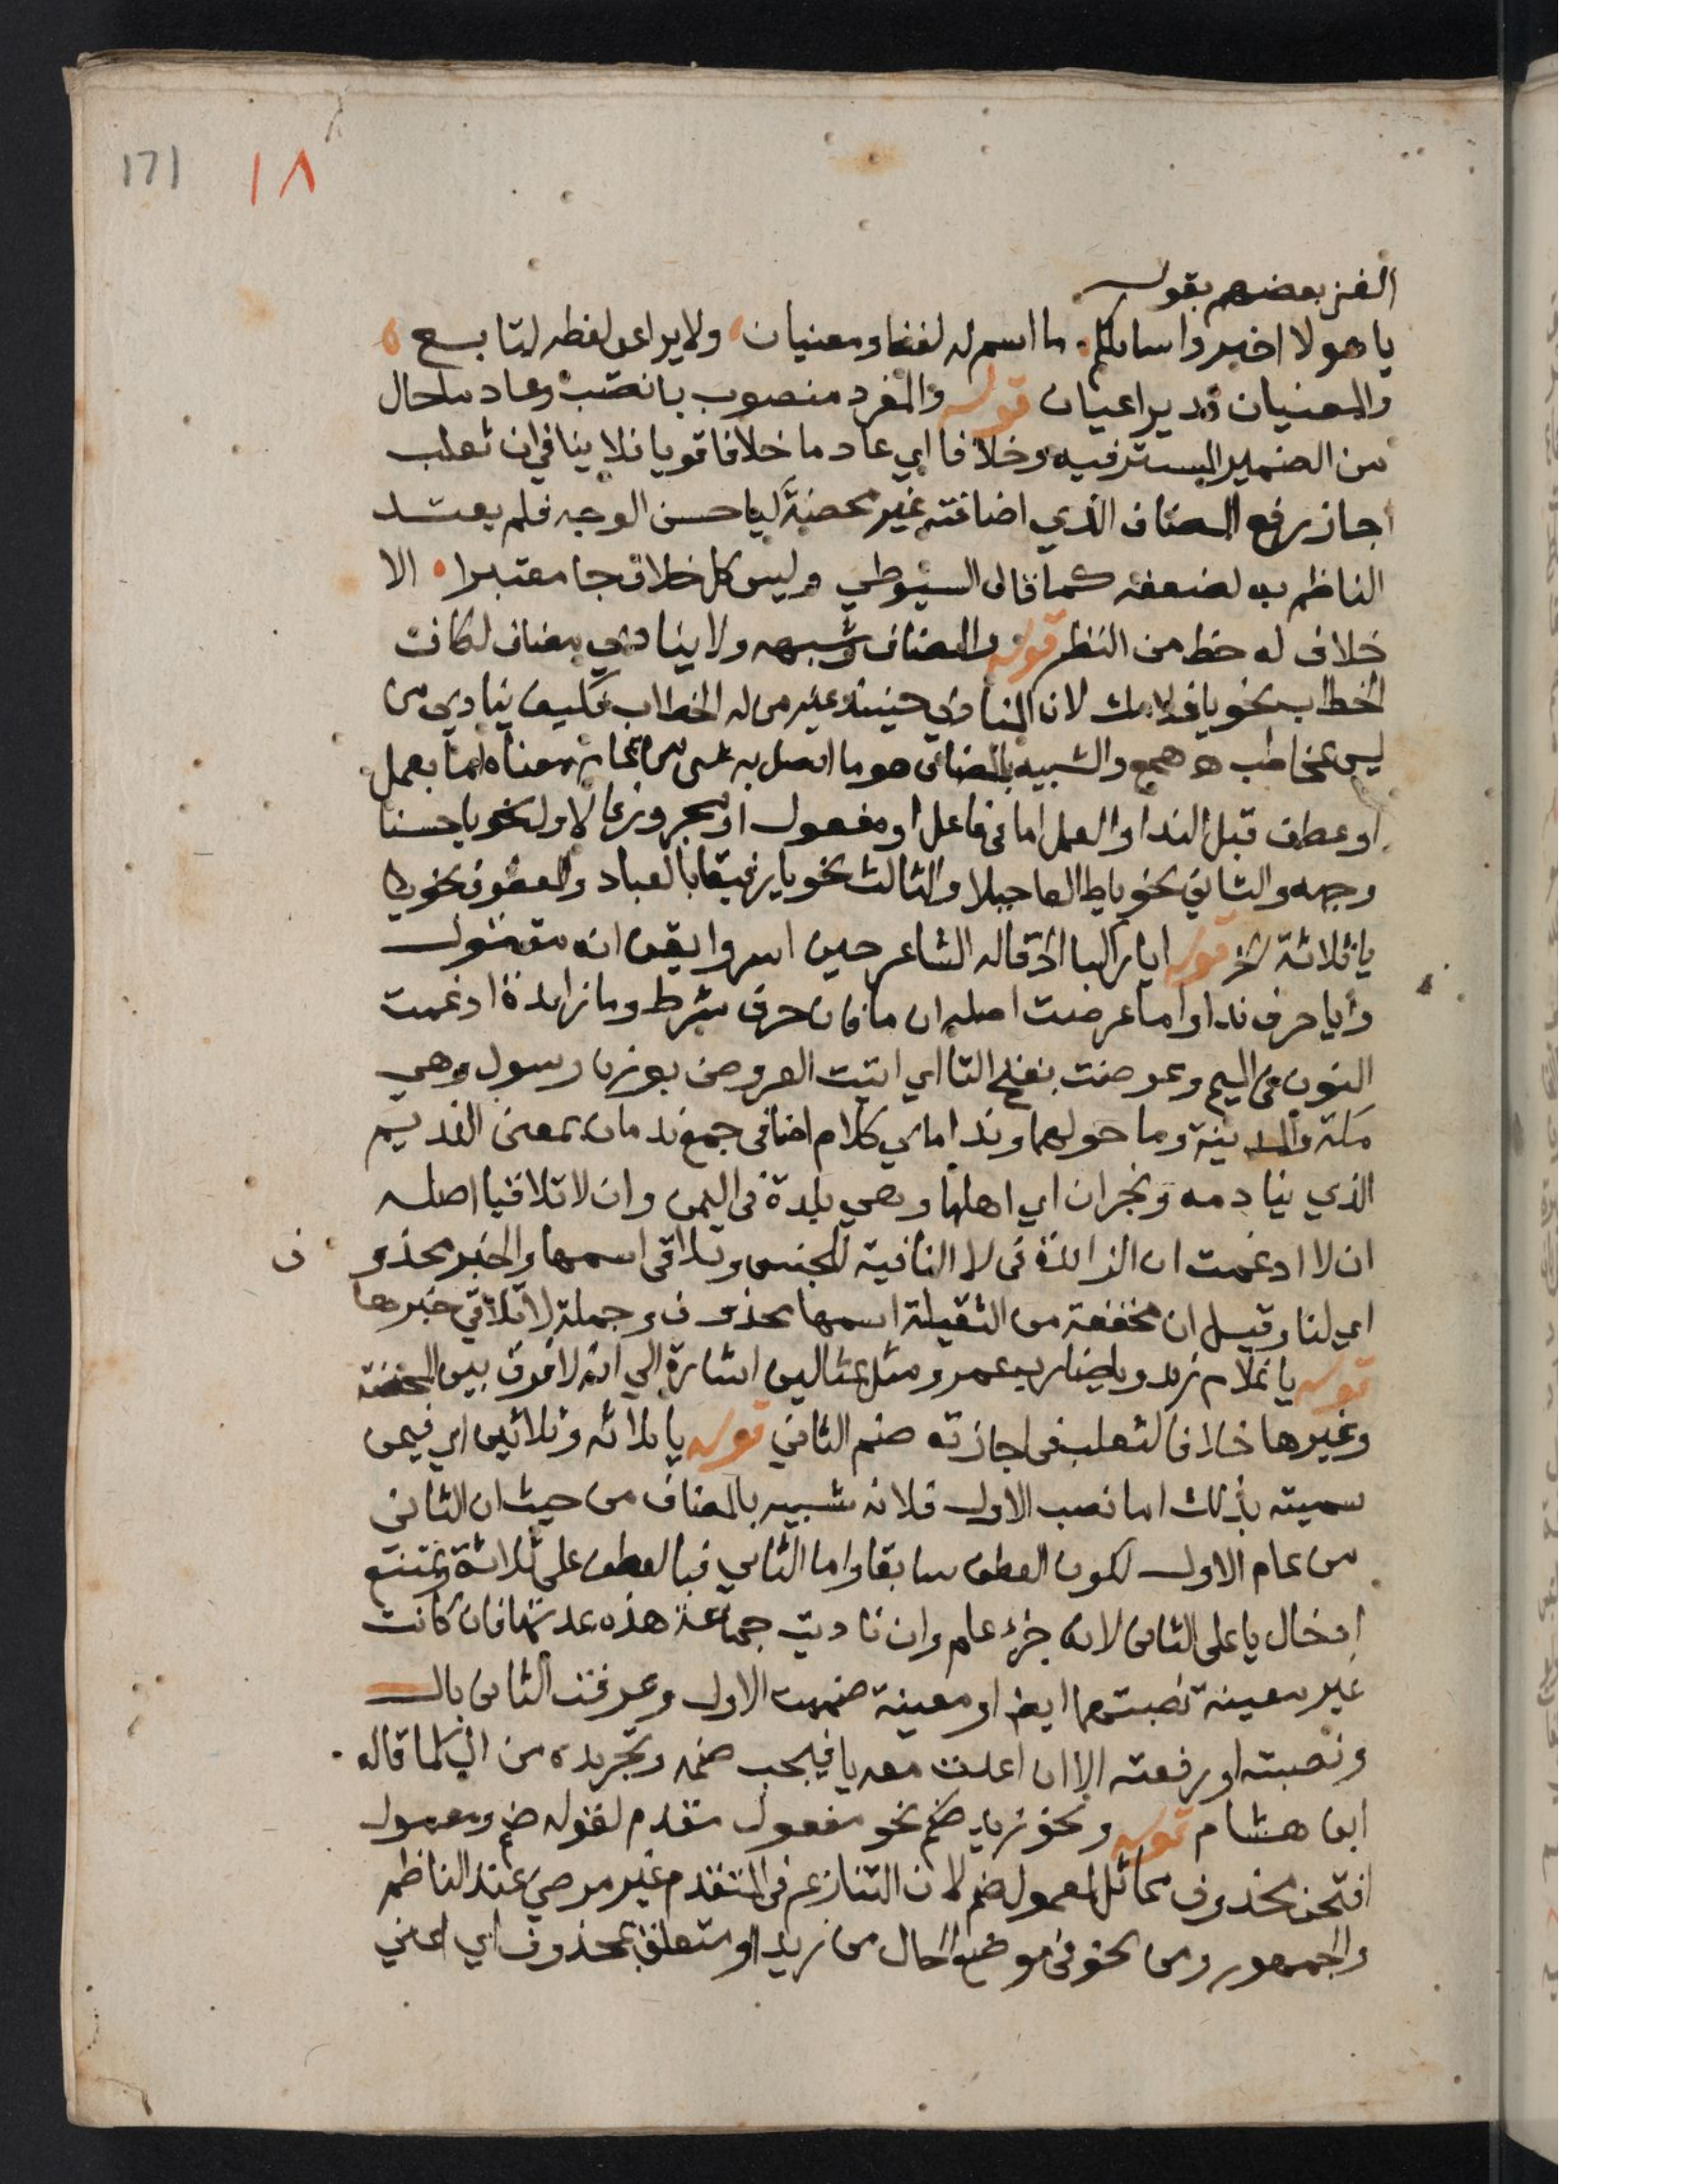 171 ١٨
الغز بعضهم بقوله
يا هولا اخبروا سايلكم ما اسم له لفظ ومعنيان ولا يراعى لفظه لتابع
والمعنيان قد يراعيان قوله والمفرد منصوب بانصب وعادما حال
من الضمير المستتر فيه وخلافا اي عادما خلافا قويا فلا ينافي ان ثعلب
اجاز رفع المضاف الذي اضافته غير محضة كيا حسن الوجه فلم يعتد
الناظم به لضعفه كما قال السيوطي وليس كل خلاف جا معتبرا الا
خلاف له حظ من النظر قوله والمضاف وشبهه ولا ينادي مضاف لكاف
الخطاب نحو يا غلامك لان المنادي حينئذ غير من له الخطاب فكيف ينادي من
ليس بمخاطب همع والشبيه بالمضاف هو ما اتصل به شي من تمام معناه اما بعمل
او عطف قبل الندا والعمل اما في فاعل او مفعول او مجرور فالاول نحو يا حسنا
وجهه والثاني نحو يا طالعا جبلا والثالث نحو يا رفيقا بالعباد والعطف نحو
يا ثلاثة الخ قوله ايا راكبا اذ قاله الشاعر حين اسر وايقن انه مقتول
وايا حرف ندا واما عرضت اصله ان ما فان حرف شرط وما زايدة ادغمت
النون في الميم وعرضت بفتح التا اي اتيت العروض بوزن رسول وهي
مكة والمدينة وما حولهما ونداماي كلام اضافي جمع ندمان بمعنى النديم
الذي ينادمه ونجران اي اهلها وهي بلدة في اليمن وان لا تلاقيا اصله
ان لا ادغمت ان الزايدة في لا النافية للجنس وتلاقي اسمها والخبر محذو ف
اي لنا وقيل ان مخففة من الثقيلة اسمها محذوف وجملة لا تلاقي خبرها
قوله يا غلام زيد ويا ضارب عمرو ومثل بمثالين اشارة الي انه لا فرق بين المحضة
وغيرها خلافا لثعلب في اجازته ضم الثاني قوله يا ثلاثه وثلاثين اي فيمن
سميته بذلك اما نصب الاول فلانه شبيه بالمضاف من حيث ان الثاني
من تمام الاول لكون العطف سابقا واما الثاني فبالعطف على ثلاثة ويمتنع
ادخال يا على الثاني لانه جزء علم وان ناديت جماعة هذه عدتها فان كانت
غير معينة نصبتهما ايضا او معينة ضممت الاول وعرفت الثاني بال
ونصبته او رفعته الا ان اعدت معه يا فيجب ضمه وتجريده من ال كما قاله
ابن هشام قوله ونحو زيد ضم نحو مفعول مقدم لقوله ضم ومعمول
افتحن محذوف مماثل لمعمول ضم لان التنازع في المتقدم غير مرضي عند الناظم
والجمهور ومن نحو في موضع الحال من زيد او متعلق بمحذوف اي اعني